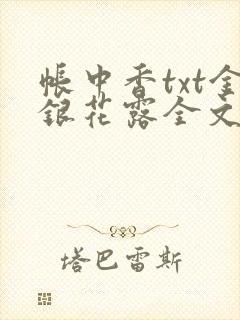 帳中香txt金
銀花露全文
塔巴雷斯